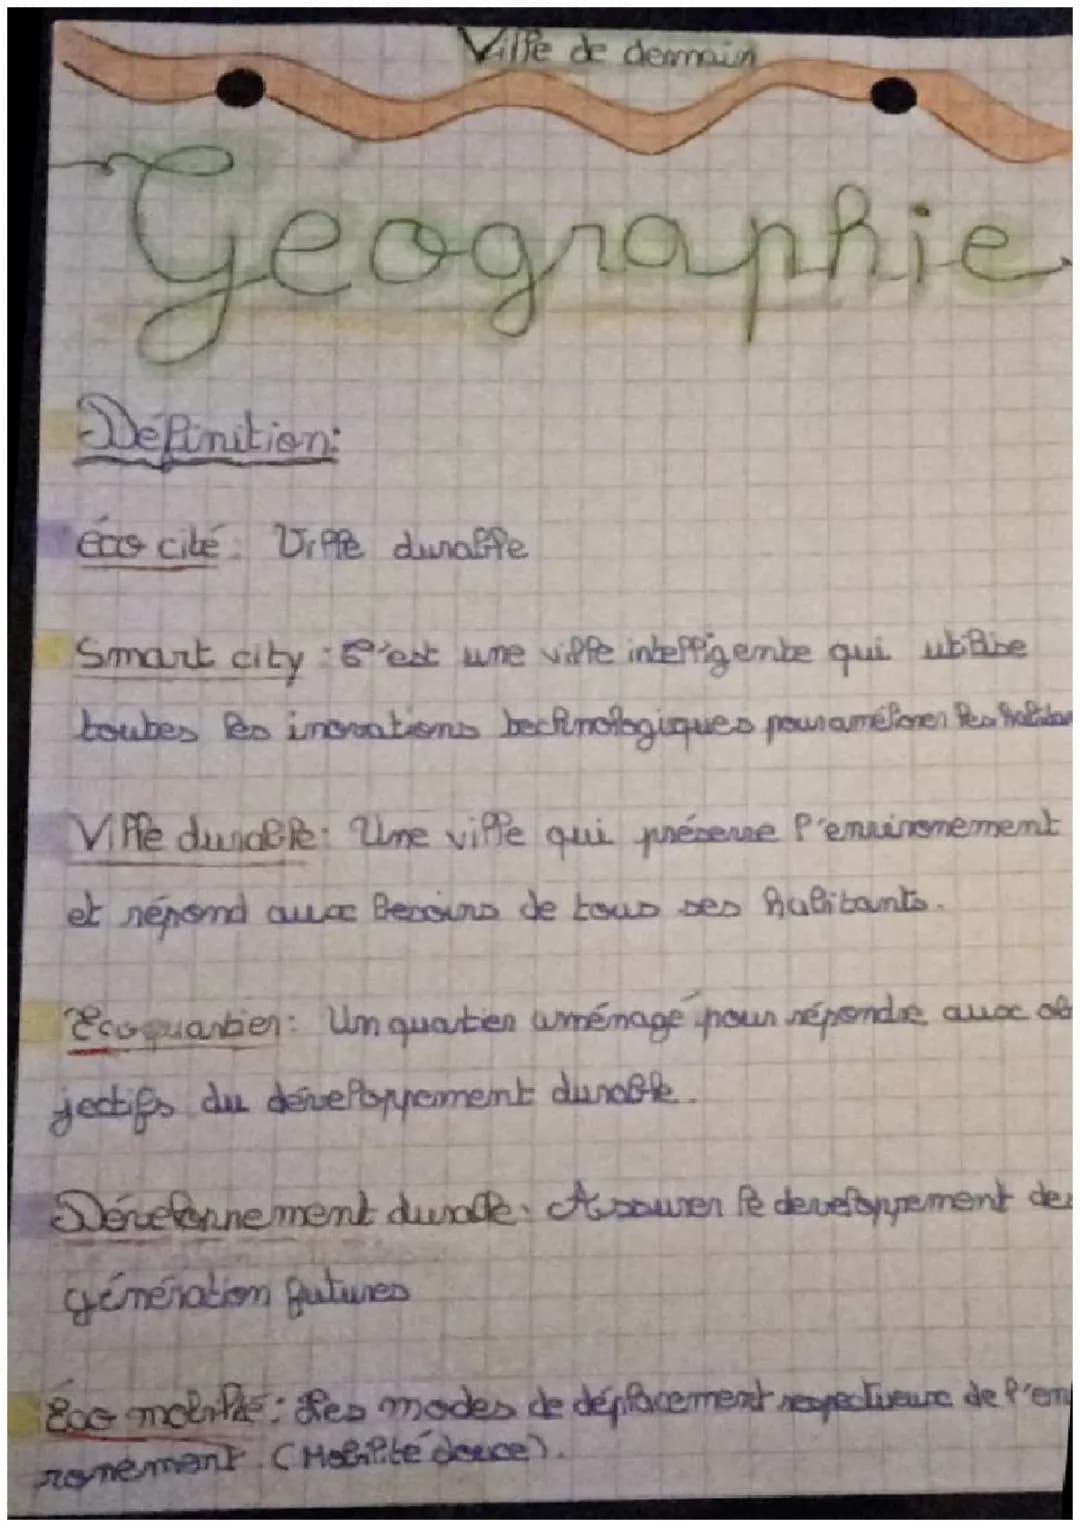 Ville de demain
Geographie
Définition:
éco cité: Ville durable
Smart city : C'est une ville intelligente qui utilise
toutes les inovations technologiques pour améliorer les
Ville durable: Une ville qui préserve l'environement
et répond aux besoins de tous ses habitants.
Ecoquartier: Un quartier aménagé pour répondre aux ob
jectifs du développement durable.
Développement durable: Assurer le developpement des
génération futures
Éco mobilité: Les modes de déplacement respectueux de l'en
ronement (Mobilité douce).